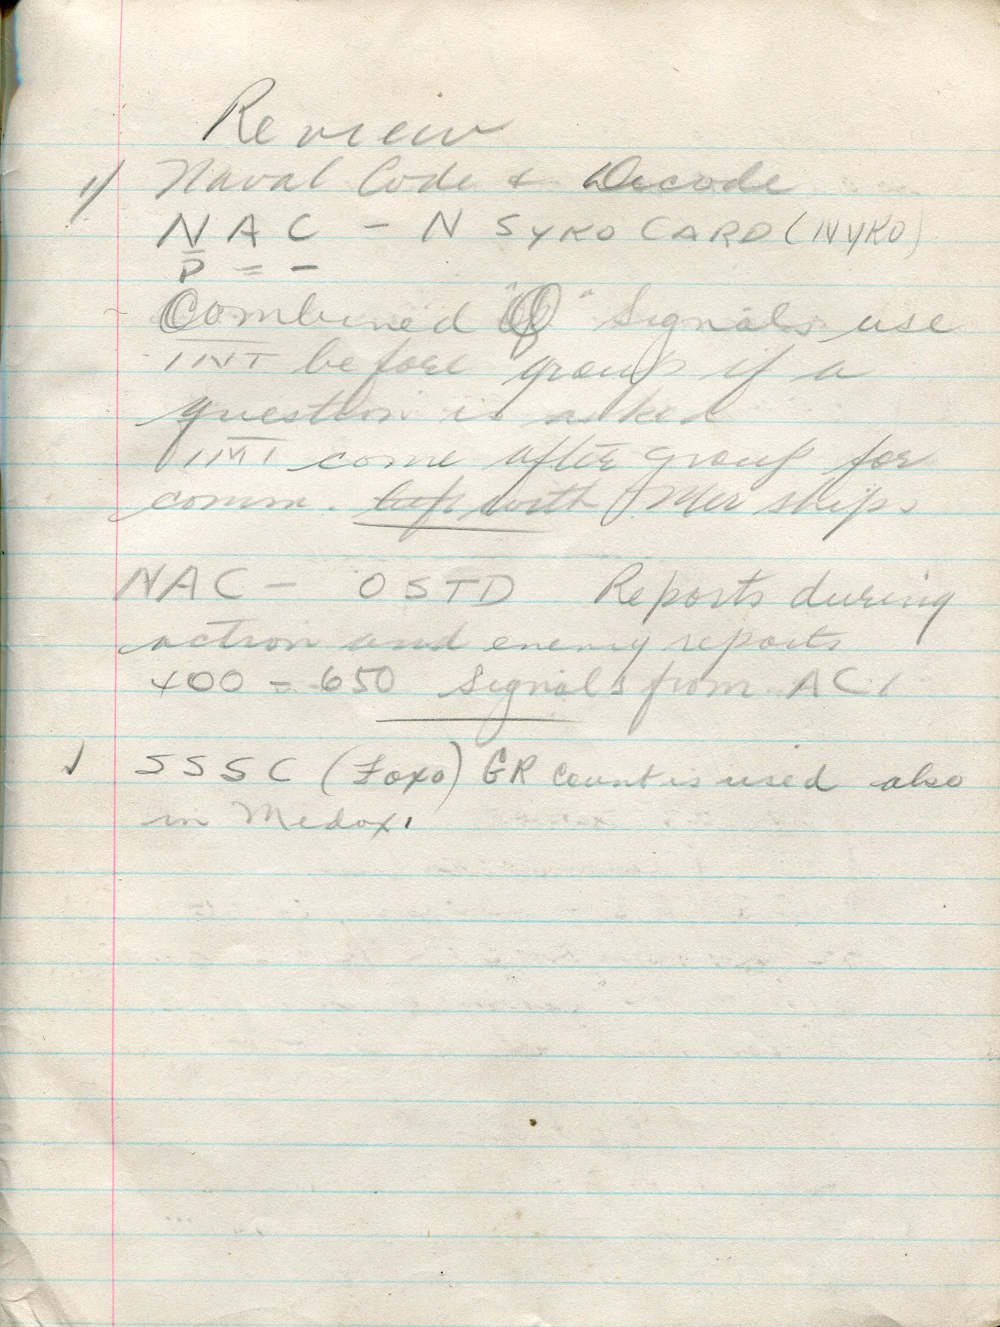 Review
1/ Naval Code & Decode
NAC - N SYKO CARD (NYKO)
P = -
Combined "Q" Signals use
INT before group if a
question is asked
IMI come after group for
comm. with Mer ships.
NAC - OSTD Reports during
action and enemy reports
400 - 650 Signals from AC1
SSSC (Foxo) GR count is used also
in Medox.